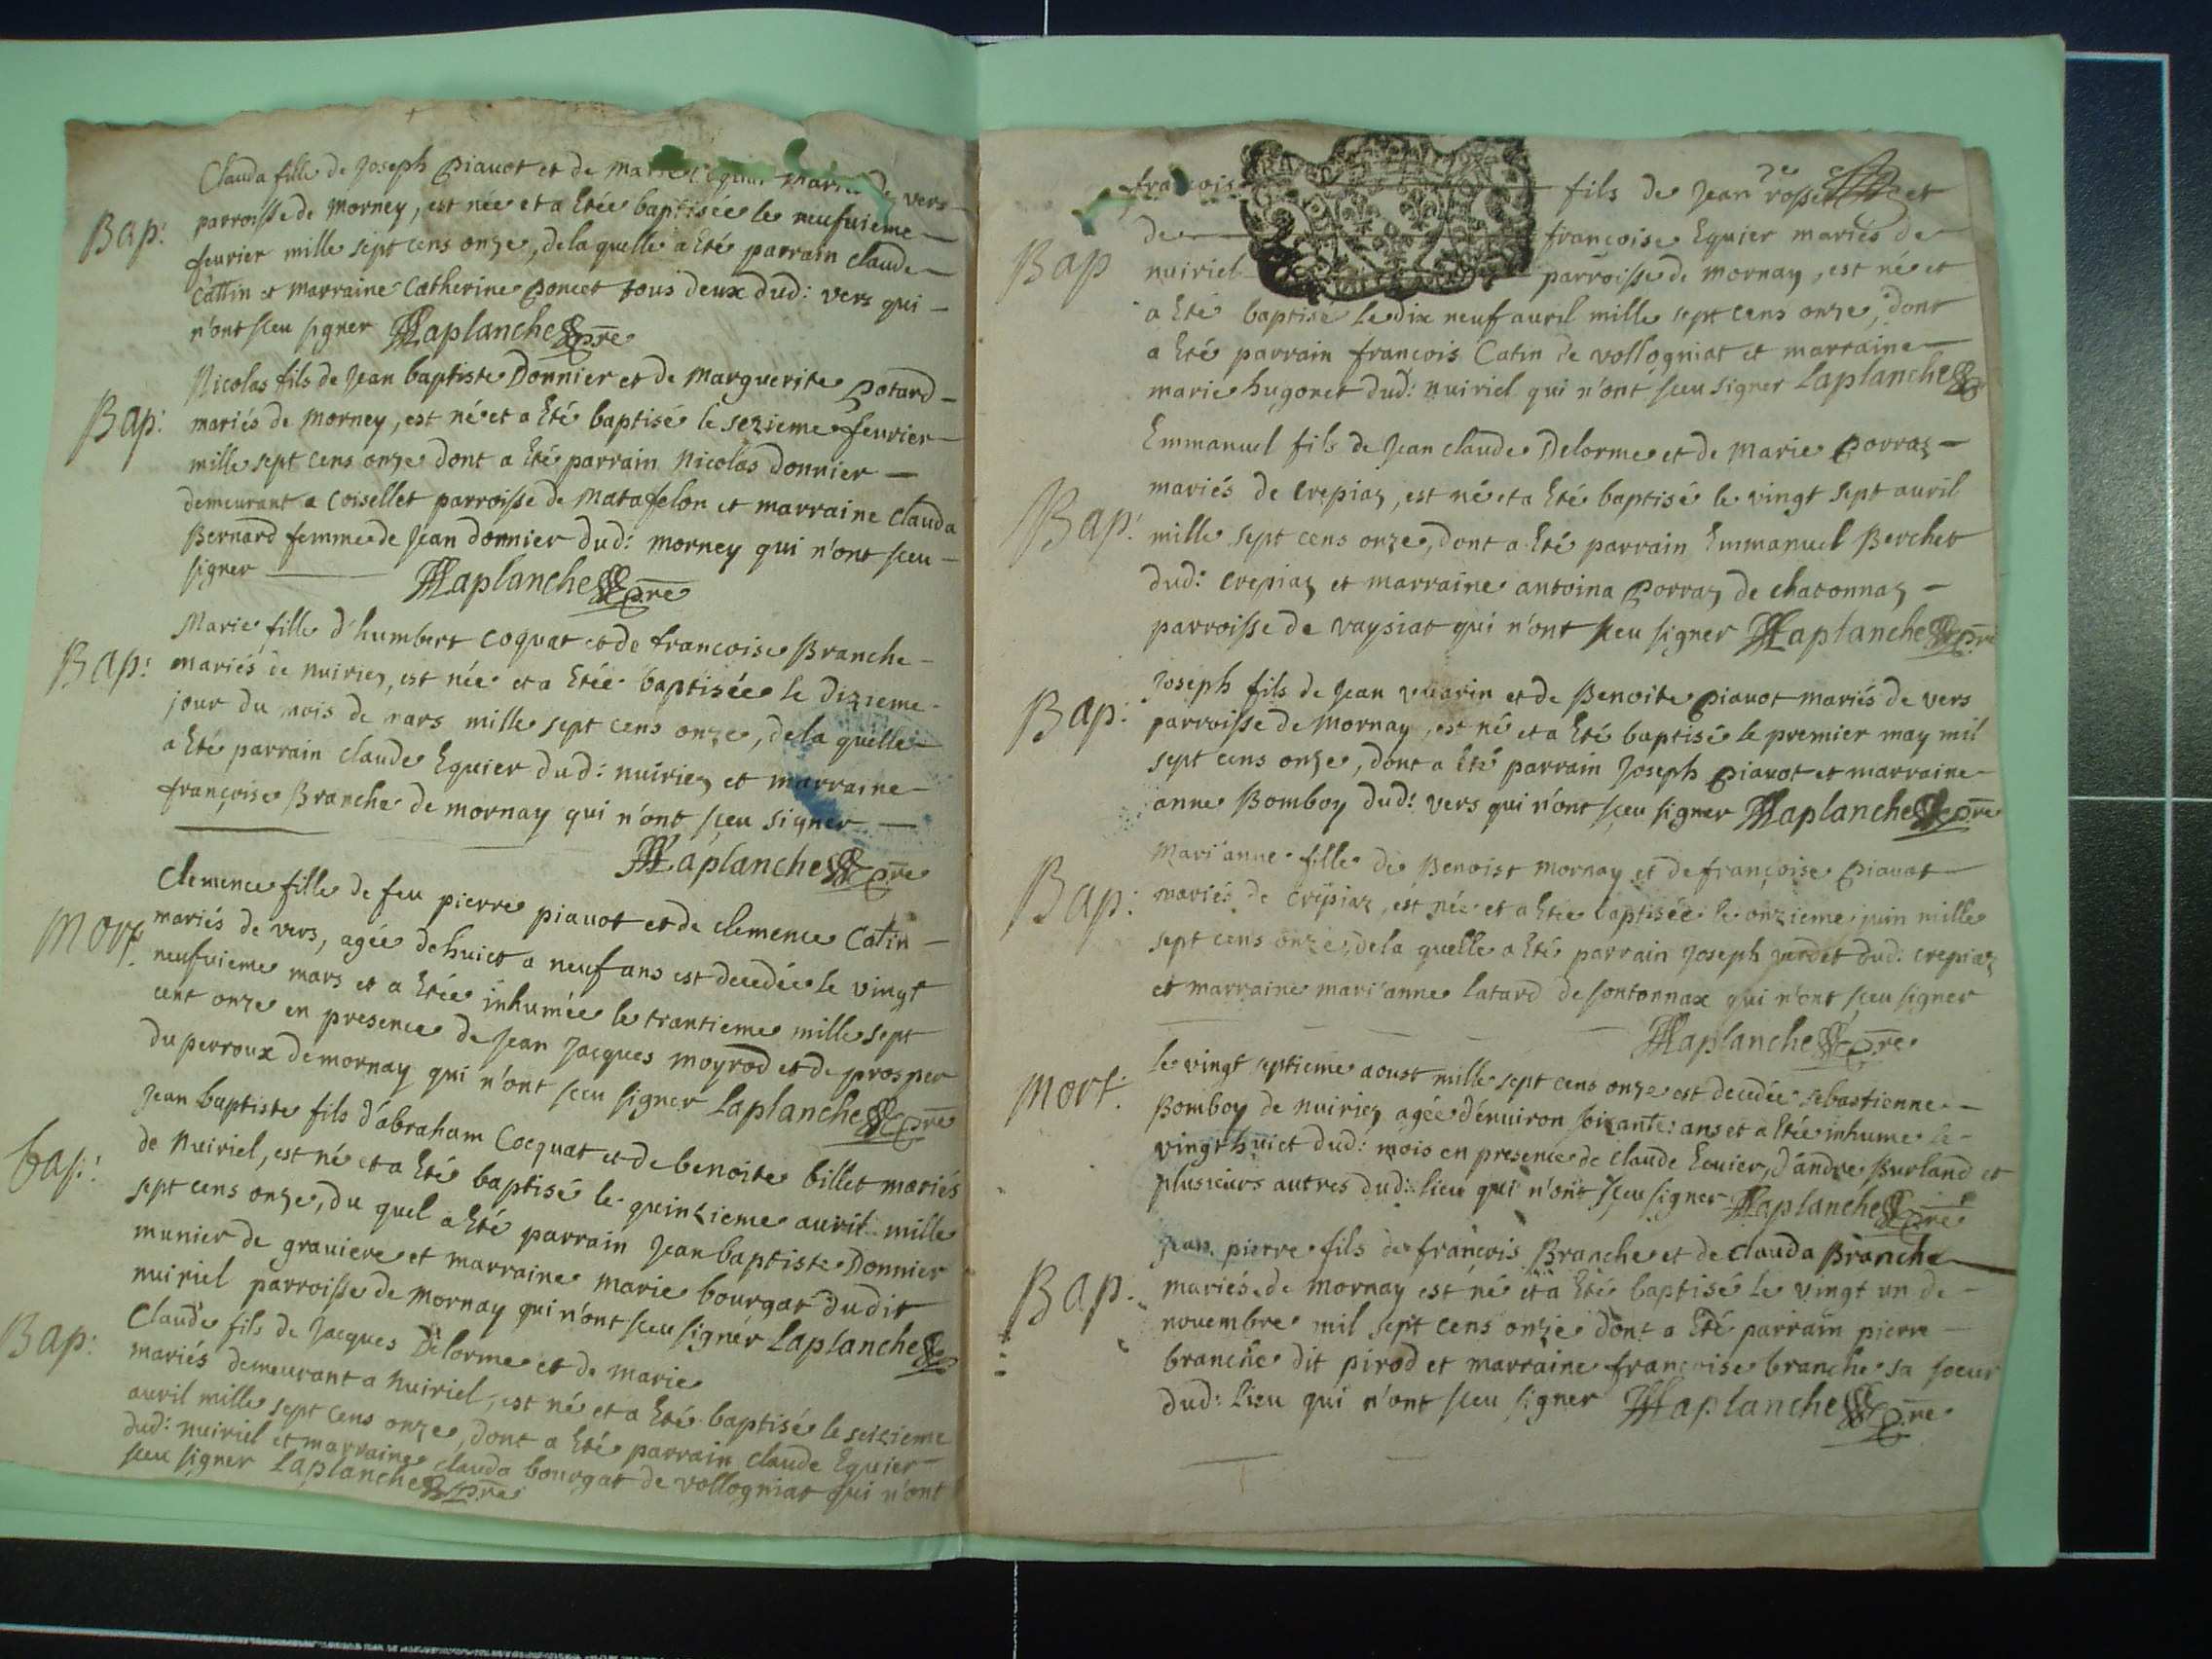 Clauda fille de Joseph piauot et de Marie Equier mariés de vers
Bap: parroisse de Morney, est née et a Etée baptisée le neufuieme
feurier mille sept cens onze, de la quelle a Eté parrain claude
Cattin et marraine Catherine poncet tous deux dud: vers qui
n'ont sceu signer Laplanche pre
Nicolas fils de Jean baptiste Donnier et de Marguerite potard
Bap: mariés de Morney, est né et a Eté baptisé le sezieme feurier
mille sept cens onze dont a Eté parrain Nicolas donnier
demeurant a Coisellet parroisse de Matafelon et marraine clauda
Bernard femme de Jean donnier dud: morney qui n'ont sceu
signer Laplanche pre
Marie fille d'humbert coquat et de francoise Branche
Bap: mariés de nuiriez, est née et a Etée baptisée le dizieme
jour du mois de mars mille sept cens onze, de la quelle
a Eté parrain claude Equier dud: nuiriez et marraine
françoise Branche de mornay qui n'ont sceu signer
Laplanche pre
Clemence fille de feu pierre piauot et de clemence Catin
Mort. mariés de vers, agée de huict a neuf ans est decedée le vingt
neufuieme mars et a Etée inhumée le trantieme mille sept
cent onze en presence de Jean Jacques moyrod et de prosper
du perroux de mornay qui n'ont sceu signer Laplanche pre
Jean baptiste fils d'abraham Cocquat et de benoite billet mariés
bap: de Nuiriel, est né et a Eté baptisé le quinzieme auril mille
sept cens onze, du quel a Eté parrain Jean baptiste Donnier
munier de grauiere et marraine marie bourgat dudit
nuiriel parroisse de mornay qui n'ont sceu signer Laplanche
Claude fils de Jacques Delorme et de marie
Bap: mariés demeurant a Nuiriel, est né et a Eté baptisé le seizieme
auril mille sept cens onze, dont a Eté parrain claude Equier
dud: nuiriel et marraine clauda bourgat de vollogniat qui n'ont
sceu signer Laplanche pre
francois fils de Jean de rosset et
de francoise Equier mariés de
Bap nuiriel parroisse de mornay, est né et
a Eté baptisé le dix neuf auril mille sept cens onze, dont
a Eté parrain francois Catin de vollogniat et marraine
marie hugonet dud: nuiriel qui n'ont sceu signer Laplanche
Emmanuel fils de Jean claude Delorme et de Marie porraz
mariés de crepiaz, est né et a Eté baptisé le vingt sept auril
Bap: mille sept cens onze, dont a Eté parrain Emmanuel Berchet
dud: crepiaz et marraine antoina porraz de chatonnaz
parroisse de vaysiat qui n'ont sceu signer Laplanche pre
Joseph fils de Jean vuarin et de Benoite piauot mariés de vers
Bap: parroisse de Mornay, est né et a Eté baptisé le premier may mil
sept cens onze, dont a Eté parrain Joseph piauot et marraine
anne Bomboy dud: vers qui n'ont sceu signer Laplanche pre
Mari'anne fille de Benoist Mornay et de françoise piauat
Bap: mariés de crepiaz, est née et a Etée baptisée le onzieme juin mille
sept cens onze, de la quelle a Eté parrain Joseph Jardet dud: crepiaz
et marraine mari'anne latard de sontonnax qui n'ont sceu signer
Laplanche pre
Mort. le vingt septieme aoust mille sept cens onze est decedée sebastienne
Bomboy de nuiriez agée d'enuiron soixante ans et a Etée inhume le
vingt huict dud: mois en presence de claude Ecuier, d'andre Burland et
plusieurs autres dud: lieu qui n'ont sceu signer Laplanche pre
Jean pierre fils de françois Branche et de clauda Branche
Bap. mariés de Mornay est né et a Eté baptisé le vingt un de
nouembre mil sept cens onze dont a Eté parrain pierre
branche dit pirod et marraine francoise branche sa soeur
dud: lieu qui n'ont sceu signer Laplanche pre